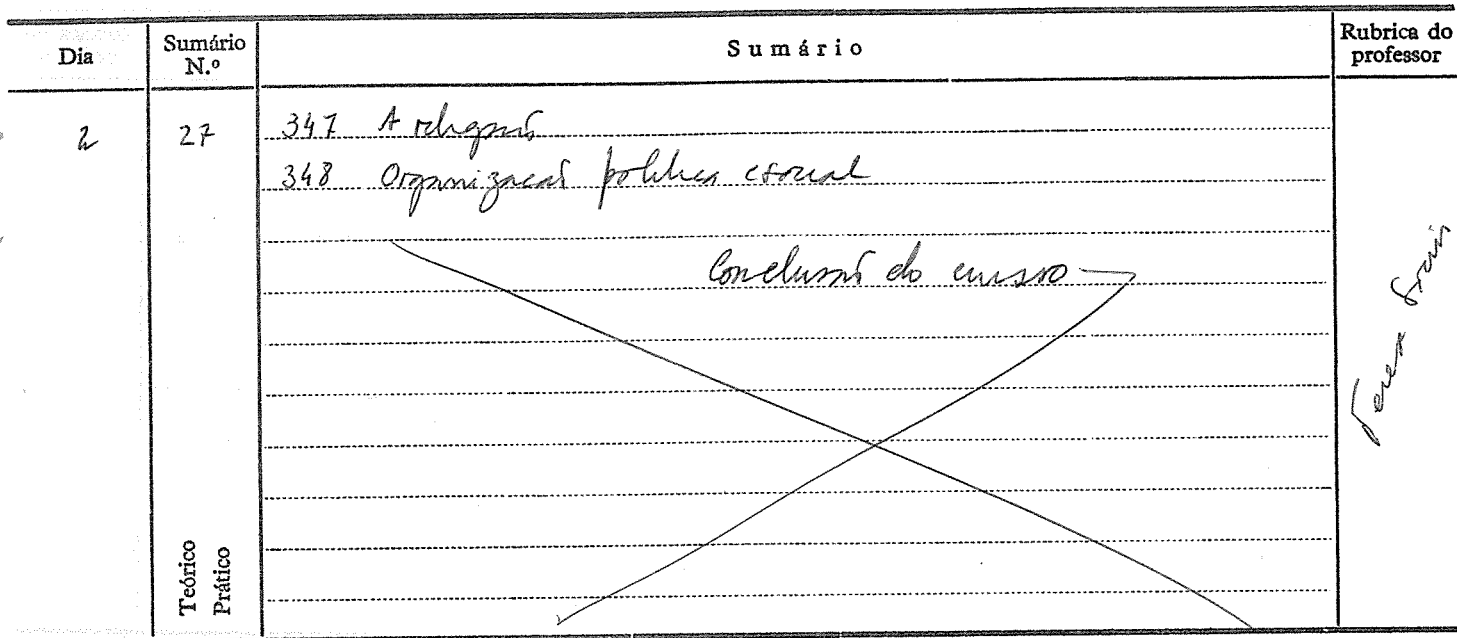 Dia
Sumário N.º
Sumário
Rubrica do professor
2
27
347 A religião
348 Organização política e social
Conclusão do curso
Teórico
Prático